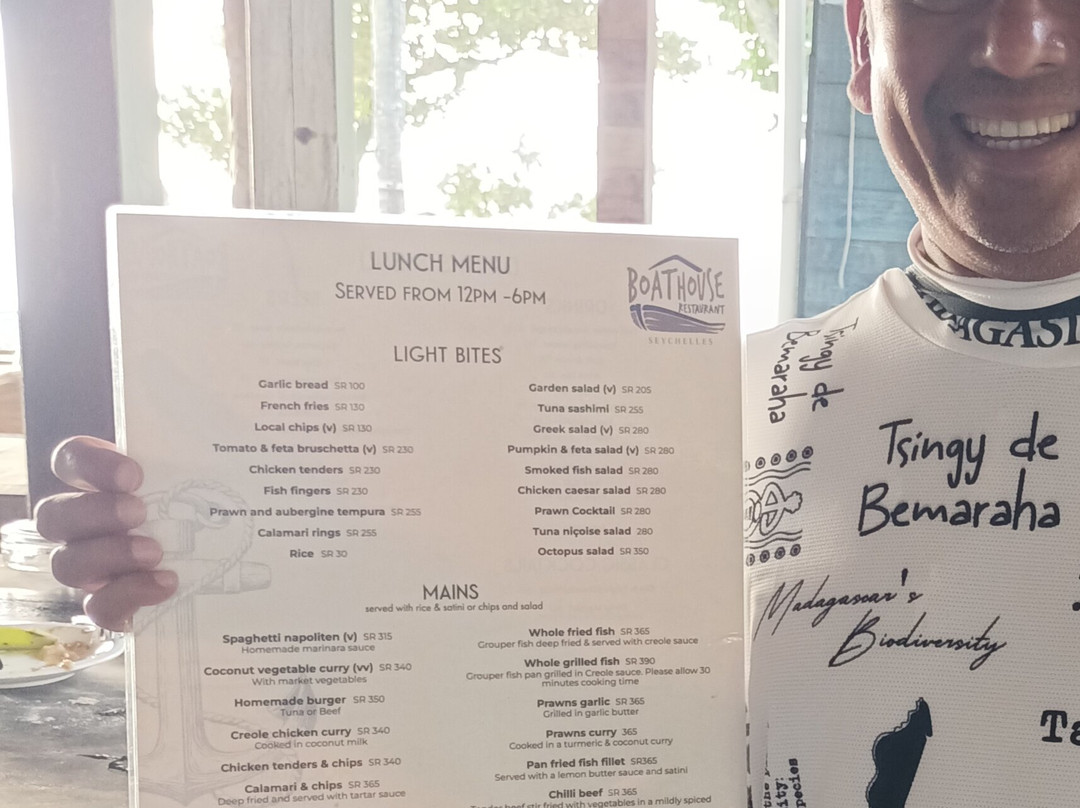 LUNCH MENU
SERVED FROM 12PM -6PM
BOATHOUSE
RESTAURANT
SEYCHELLES
LIGHT BITES
Garlic bread SR 100
French fries SR 130
Local chips (v) SR 130
Tomato & feta bruschetta (v) SR 230
Chicken tenders SR 230
Fish fingers SR 230
Prawn and aubergine tempura SR 255
Calamari rings SR 255
Rice SR 30
Garden salad (v) SR 205
Tuna sashimi SR 255
Greek salad (v) SR 280
Pumpkin & feta salad (v) SR 280
Smoked fish salad SR 280
Chicken caesar salad SR 280
Prawn Cocktail SR 280
Tuna niçoise salad 280
Octopus salad SR 350
MAINS
served with rice & satini or chips and salad
Spaghetti napoliten (v) SR 315
Homemade marinara sauce
Coconut vegetable curry (vv) SR 340
With market vegetables
Homemade burger SR 350
Tuna or Beef
Creole chicken curry SR 340
Cooked in coconut milk
Chicken tenders & chips SR 340
Calamari & chips SR 365
Deep fried and served with tartar sauce
Whole fried fish SR 365
Grouper fish deep fried & served with creole sauce
Whole grilled fish SR 390
Grouper fish pan grilled in Creole sauce. Please allow 30
minutes cooking time
Prawns garlic SR 365
Grilled in garlic butter
Prawns curry 365
Cooked in a turmeric & coconut curry
Pan fried fish fillet SR365
Served with a lemon butter sauce and satini
Chilli beef SR 365
Tender beef stir fried with vegetables in a mildly spiced
Tsingy de
Bemaraha
Tsingy de
Bemaraha
Madagascar's
Biodiversity